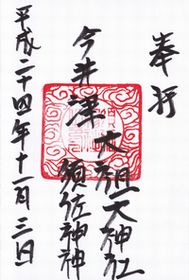 奉拝
今井津
大祖大神社
須佐神社
平成二十四年十一月三日